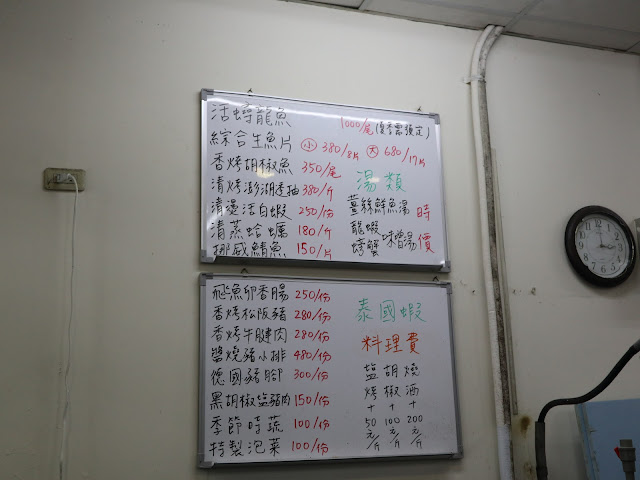 活鱘龍魚 1000/尾(須事先預定)
綜合生魚片 小 380/8片 大 680/17片
香烤胡椒魚 350/尾
清烤澎湖透抽 380/斤
清燙活白蝦 250/份
清蒸蛤蠣 180/斤
挪威鯖魚 150/片
湯類
薑絲鮮魚湯
龍蝦
螃蟹 味噌湯
時價
飛魚卵香腸 250/份
香烤松阪豬 280/份
香烤牛腱肉 280/份
鹽燒豬小排 480/份
德國豬腳 300/份
黑胡椒鹽豬肉 150/份
季節時蔬 100/份
特製泡菜 100/份
泰國蝦
料理費
盐烤+50元/斤
胡椒+100元/斤
燒酒+200元/斤